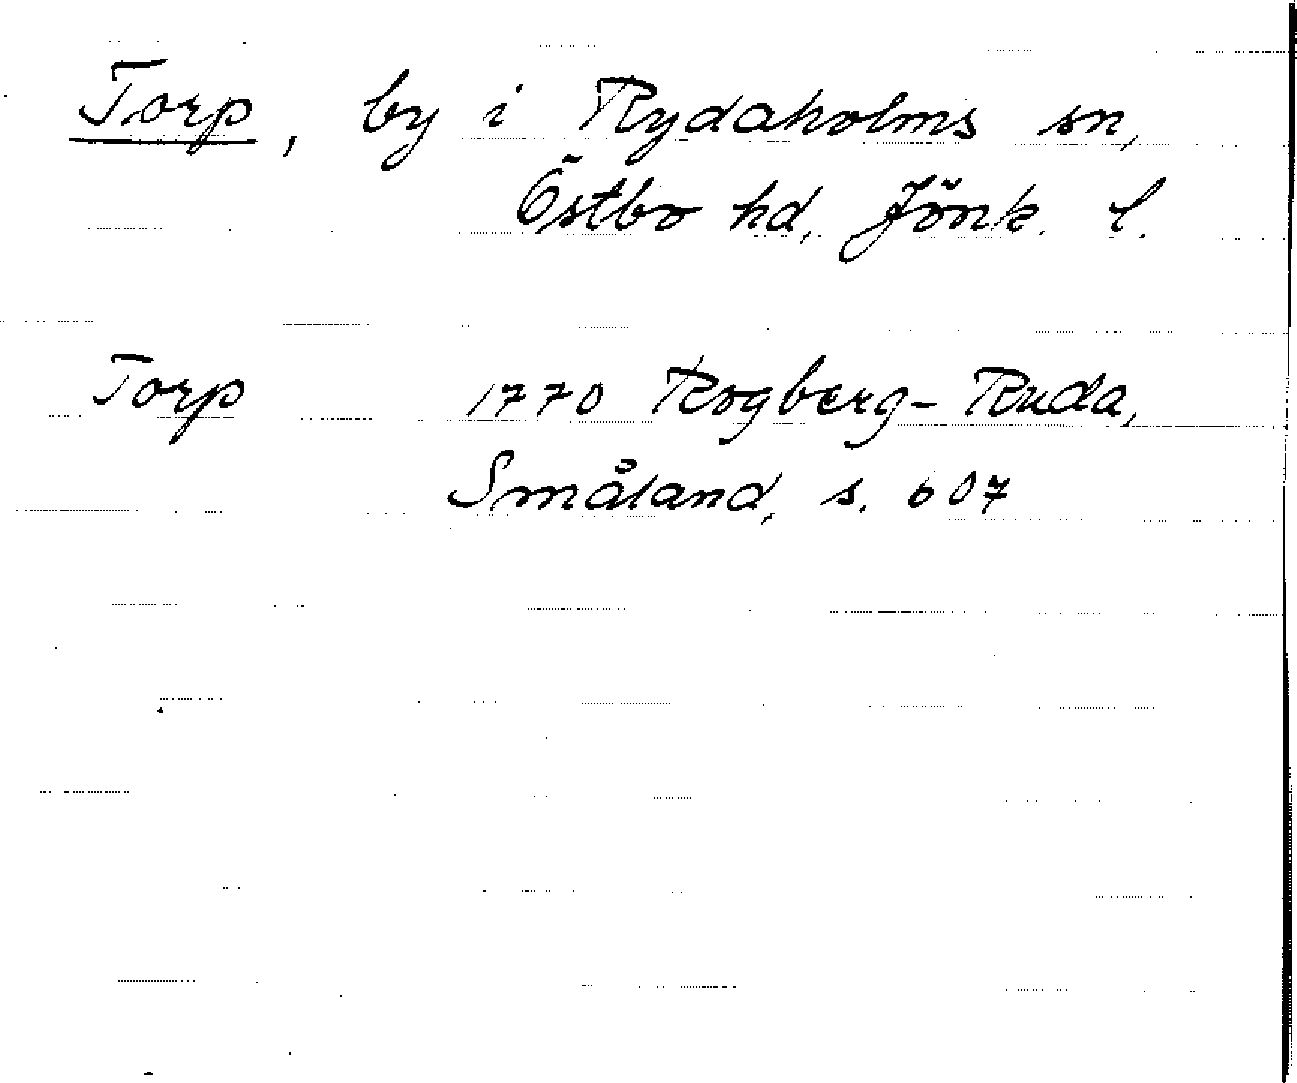 Torp, by i Rydaholms sn,
Östbo hd, Jönk. l.
Torp 1770 Rogberg-Ruda,
Småland, s. 607